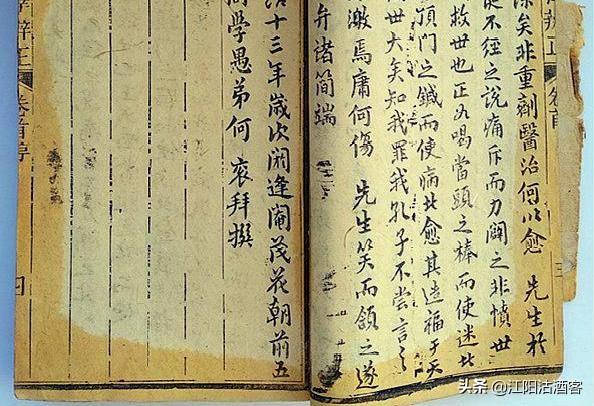 辨正 卷首
矣非重劑醫治何以愈 先生於
不經之說痛斥而力闢之非憤世
救世也正為喝當頭之棒而使迷者
頂門之鍼而使病者愈其造福于天
世大矣知我罪我孔子不嘗言之
激焉庸何傷 先生笑而頷之遂
弁諸簡端
治十三年歲次閼逢閹茂花朝前五
同學愚弟何 拜撰
辨正 卷首序 四
头条 @江阳沽酒客